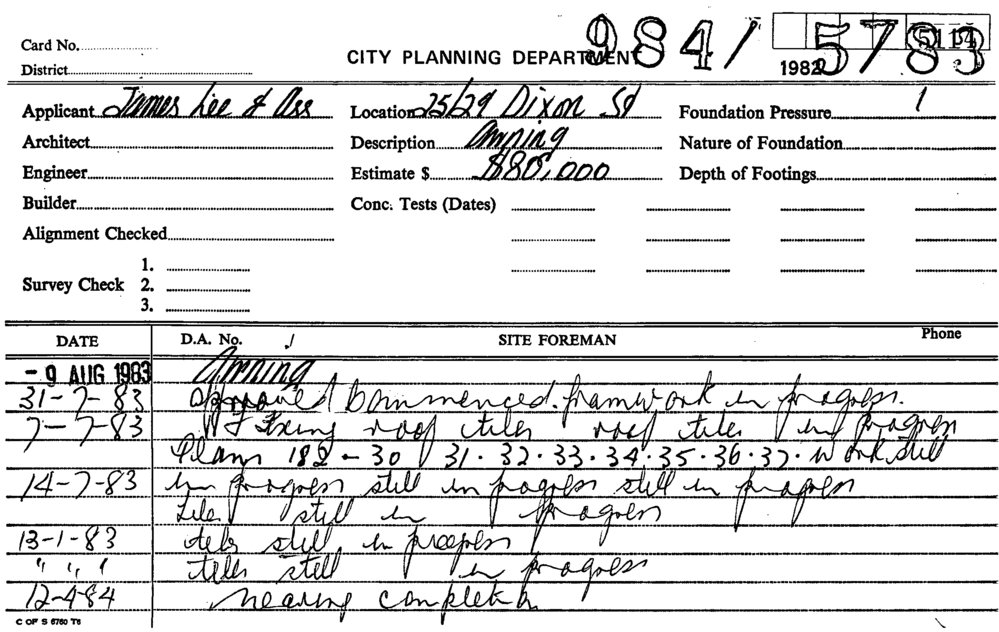 Card No.
District
CITY PLANNING DEPARTMENT
984/ 5783
5114
1982
Applicant James Lee & Ass
Location 25/29 Dixon St
Foundation Pressure
Architect
Description Awning
Nature of Foundation
Engineer
Estimate $ $80,000
Depth of Footings
Builder
Conc. Tests (Dates)
Alignment Checked
Survey Check 1.
2.
3.
DATE D.A. No. SITE FOREMAN Phone
- 9 AUG 1983 Awning
31-7-83 approved Commenced. framwork in progress.
7-7-83 Fixing roof tiles roof tiles in progress
Plans 182-30 31.32.33.34.35.36.37. Work still
14-7-83 in progress still in progress still in progress
still in progress
13-1-83 still in progress
" " " tiles still in progress
12-4-84 nearing completion
C OF S 6760 T6